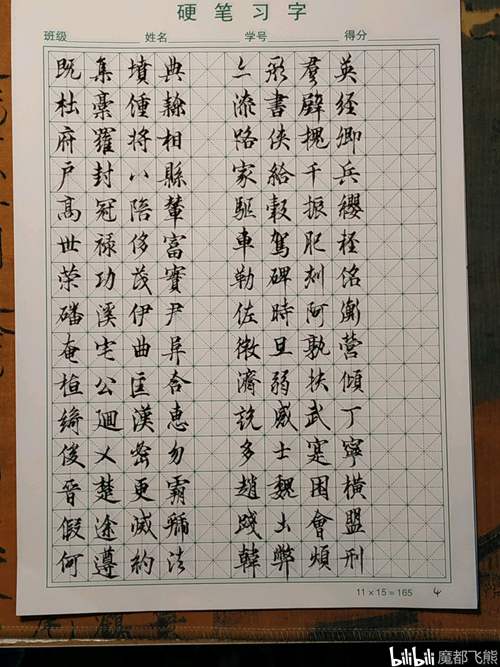 硬笔习字
班级 姓名 学号 得分
既集墳典 亦聚羣英
杜稾鍾隸 漆書壁經
府羅將相 路俠槐卿
戶封八縣 家給千兵
高冠陪輦 驅轂振纓
世祿侈富 車駕肥輕
策功茂實 勒碑刻銘
磻溪伊尹 佐時阿衡
奄宅曲阜 微旦孰營
桓公匡合 濟弱扶傾
綺迴漢惠 說感武丁
俊乂密勿 多士寔寧
晉楚更霸 趙魏困橫
假途滅虢 踐土會盟
何遵約法 韓弊煩刑
11×15=165 4
bilibili 魔都飞熊